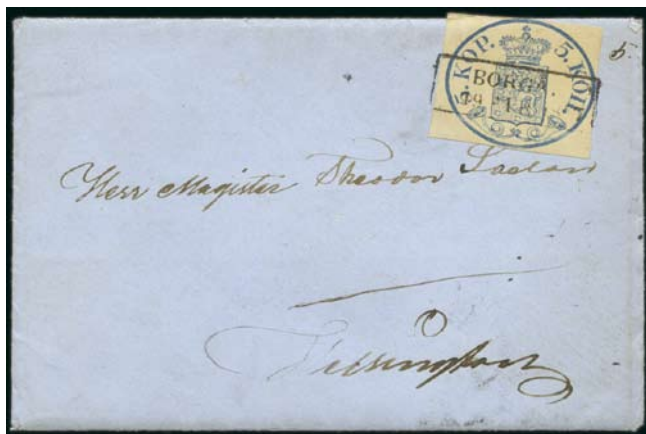 5. KOP. 5. КОП.
BORGÅ.
5.
Herr Magister Theodor Saelan
Helsingfors